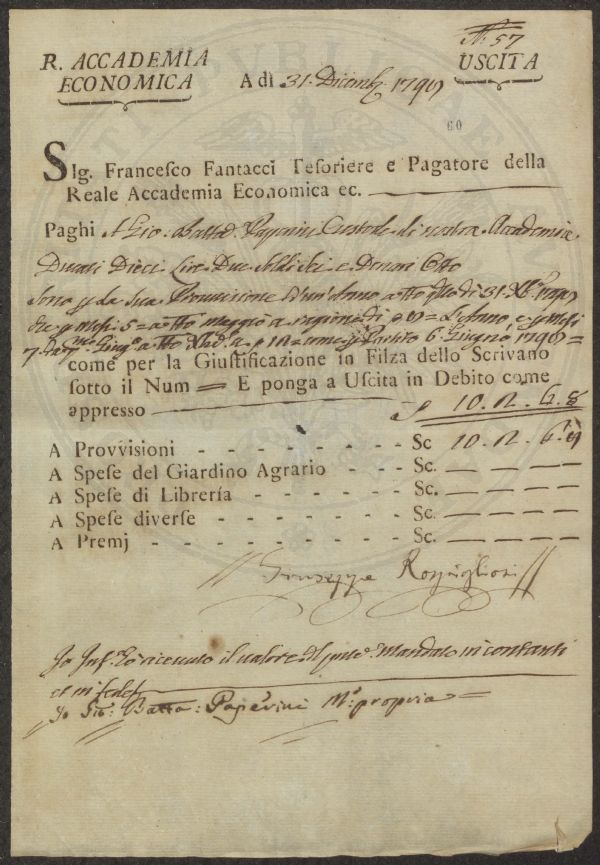 N. 57
R. ACCADEMIA ECONOMICA
A dì 31. Dicemb. 179
USCITA
60
SIg. Francesco Fantacci Tesoriere e Pagatore della
Reale Accademia Economica ec.
Paghi A Gio. Batta. Custode di nostra Accademia
Ducati Dieci Lire Due Soldi Sei e Denari Otto
Sono p. la sua Provvisione d'un Anno a tto. 31. Xbre
p. Mesi 5 = a tto. Maggio a ragione di
Partito 6. Giugno 179
come per la Giustificazione in Filza dello Scrivano
sotto il Num = E ponga a Uscita in Debito come
appresso 10. 2. 6. 8
A Provvisioni - - - - - - - - Sc 10. 2. 6. 8
A Spese del Giardino Agrario - - - - Sc.
A Spese di Librería - - - - - - - Sc.
A Spese diverse - - - - - - - - Sc.
A Premj - - - - - - - - - - Sc.
Giuseppe Rospigliosi
Io Inf.o ò ricevuto il valore del Mandato in contanti
et in fede
Io Gio: Batta: M.o propria